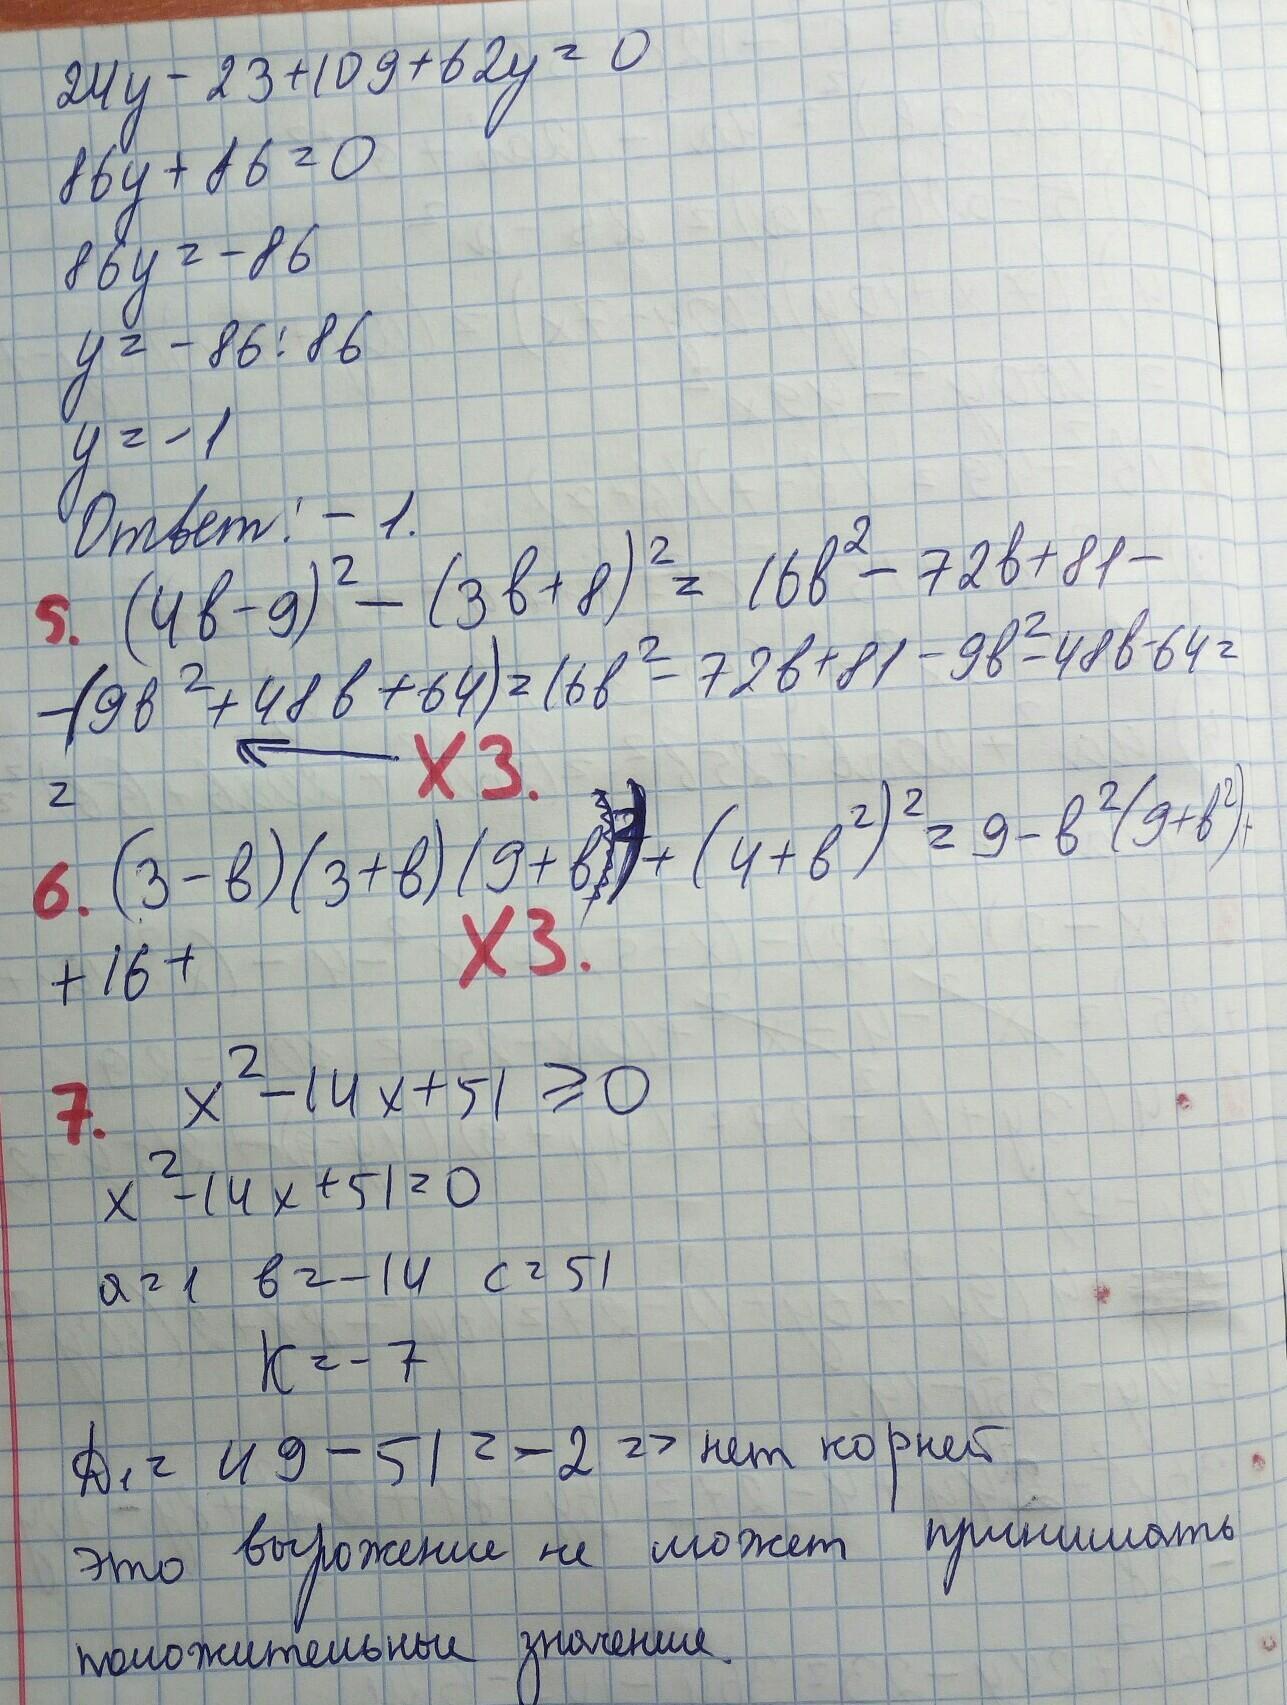 24y - 23 + 109 + 62y = 0
86y + 86 = 0
86y = -86
y = -86 : 86
y = -1
Ответ: -1.
5. (4в-9)² - (3в+8)² = 16в² - 72в + 81 -
-(9в² + 48в + 64) = 16в² - 72в + 81 - 9в² - 48в - 64 =
=
ХЗ.
6. (3-в)(3+в)(9+в²) + (4+в²)² = 9 - в²(9+в²) +
+ 16 +
ХЗ.
7. x² - 14x + 51 ⩾ 0
x² - 14x + 51 = 0
a = 1 в = -14 c = 51
K = -7
D₁ = 49 - 51 = -2 => нет корней
это выражение не может принимать
положительные значение.